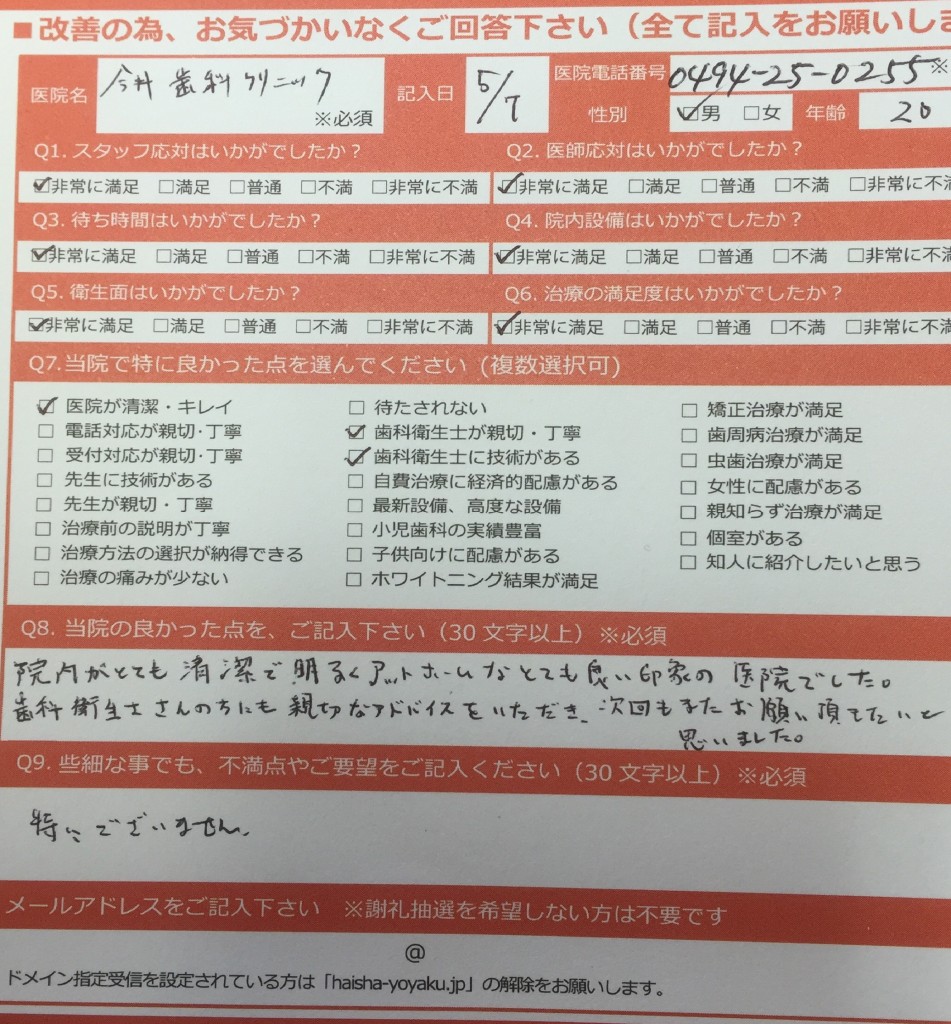 ■改善の為、お気づかいなくご回答下さい（全て記入をお願いしま
医院名 今井歯科クリニック ※必須 記入日 5/7 医院電話番号 0494-25-0255 ※
性別 ☑男 □女 年齢 20
Q1. スタッフ応対はいかがでしたか？ Q2. 医師応対はいかがでしたか？
☑非常に満足 □満足 □普通 □不満 □非常に不満 ☑非常に満足 □満足 □普通 □不満 □非常に不
Q3. 待ち時間はいかがでしたか？ Q4. 院内設備はいかがでしたか？
☑非常に満足 □満足 □普通 □不満 □非常に不満 ☑非常に満足 □満足 □普通 □不満 □非常に不満
Q5. 衛生面はいかがでしたか？ Q6. 治療の満足度はいかがでしたか？
☑非常に満足 □満足 □普通 □不満 □非常に不満 ☑非常に満足 □満足 □普通 □不満 □非常に不満
Q7.当院で特に良かった点を選んでください（複数選択可）
☑ 医院が清潔・キレイ □ 待たされない □ 矯正治療が満足
□ 電話対応が親切・丁寧 ☑ 歯科衛生士が親切・丁寧 □ 歯周病治療が満足
□ 受付対応が親切・丁寧 ☑ 歯科衛生士に技術がある □ 虫歯治療が満足
□ 先生に技術がある □ 自費治療に経済的配慮がある □ 女性に配慮がある
□ 先生が親切・丁寧 □ 最新設備、高度な設備 □ 親知らず治療が満足
□ 治療前の説明が丁寧 □ 小児歯科の実績豊富 □ 個室がある
□ 治療方法の選択が納得できる □ 子供向けに配慮がある □ 知人に紹介したいと思う
□ 治療の痛みが少ない □ ホワイトニング結果が満足
Q8. 当院の良かった点を、ご記入下さい（30 文字以上）※必須
院内がとても清潔で明るくアットホームなとても良い印象の医院でした。
歯科衛生士さんのちにも親切なアドバイスをいただき、次回もまたお願い頂きたいと
思いました。
Q9. 些細な事でも、不満点やご要望をご記入ください（30 文字以上）※必須
特にございません。
メールアドレスをご記入下さい ※謝礼抽選を希望しない方は不要です
@
ドメイン指定受信を設定されている方は「haisha-yoyaku.jp」の解除をお願いします。